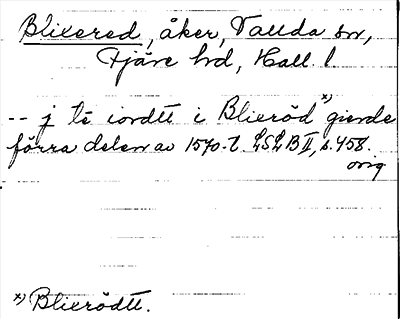 Blixered, åker, Vallda sn,
Fjäre hd, Hall. l
-- j te iordtt i Blieröd x) giende
förra delen av 1570-t. LSLB II, s. 458.
orig
x) Blierödtt.